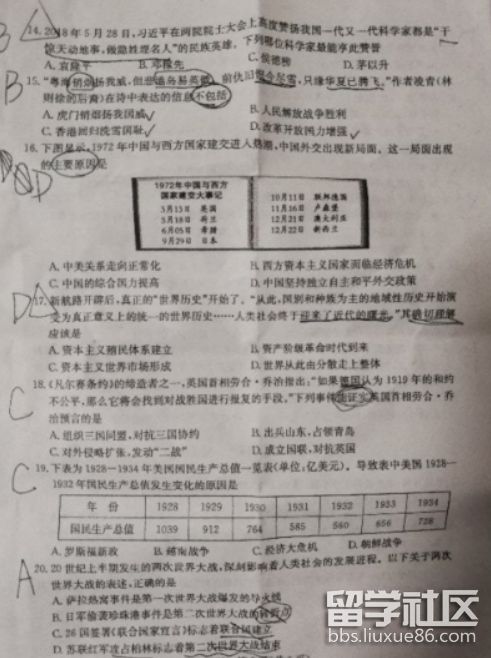 14. 2018年5月28日,习近平在两院院士大会上高度赞扬我国一代又一代科学家都是“干
惊天动地事,做隐姓埋名人”的民族英雄。下列哪位科学家最能享此赞誉
A. 袁隆平 B. 邓稼先 C. 侯德榜 D. 茅以升
B
15. “粤海销烟扬我威,但悲港岛易英徽。前仇旧恨今尽雪,只缘华夏已腾飞。”作者凌青(林
则徐的后裔)在诗中表达的信息不包括
A. 虎门销烟扬我国威 B. 人民解放战争胜利
C. 香港回归洗雪国耻 D. 改革开放国力增强
16. 下图显示,1972年中国与西方国家建交进入热潮,中国外交出现新局面。这一局面出现
的主要原因是
D
1972年中国与西方
国家建交大事记
3月13日 英国
5月18日 荷兰
6月05日 希腊
9月29日 日本
10月11日 联邦德国
11月16日 卢森堡
12月21日 澳大利亚
12月22日 新西兰
A. 中美关系走向正常化 B. 西方资本主义国家面临经济危机
C. 中国的综合国力提高 D. 中国坚持独立自主和平外交政策
D
17. 新航路开辟后,真正的“世界历史”开始了。“从此,国别和种族为主的地域性历史开始演
变为真正意义上的统一的世界历史……人类社会终于迎来了近代的曙光。”其确切理解
应该是
A. 资本主义殖民体系建立 B. 资产阶级革命时代到来
C. 资本主义世界市场形成 D. 世界从此由分散走上整体
C
18. 《凡尔赛条约》的缔造者之一,英国首相劳合·乔治指出:“如果德国认为1919年的和约
不公平,那么它将会找到对战胜国进行报复的手段。”下列事件能证实英国首相劳合·乔
治预言的是
A. 组织三国同盟,对抗三国协约 B. 出兵山东,占领青岛
C. 对外侵略扩张,发动“二战” D. 成立国联,对抗英国
C
19. 下表为1928—1934年美国国民生产总值一览表(单位:亿美元)。导致表中美国1928—
1932年国民生产总值发生变化的原因是
年 份 1928 1929 1930 1931 1932 1933 1934
国民生产总值 1039 912 764 585 560 656 728
A. 罗斯福新政 B. 越南战争 C. 经济大危机 D. 朝鲜战争
A
20. 20世纪上半期发生的两次世界大战,深刻影响着人类社会的发展进程。以下关于两次
世界大战的表述,正确的是
A. 萨拉热窝事件是第一次世界大战爆发的导火线
B. 日军偷袭珍珠港事件是第二次世界大战的转折点
C. 26国签署《联合国家宣言》标志着联合国建立
D. 苏联红军攻占柏林标志着第二次世界大战结束
留学社区
bbs.liuxue86.com